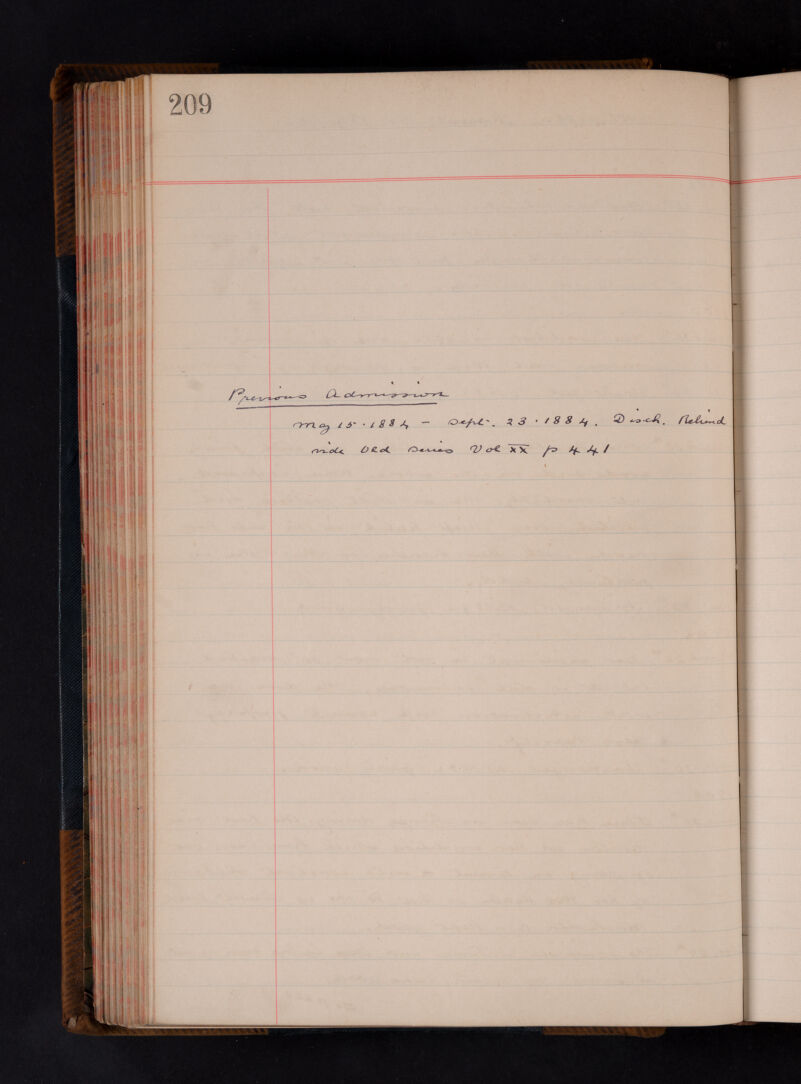 209
Previous Admission
May 15 · 1884 - Sept. 23 · 1884. Disch. Relieved
vide Old Series Vol XX p 441